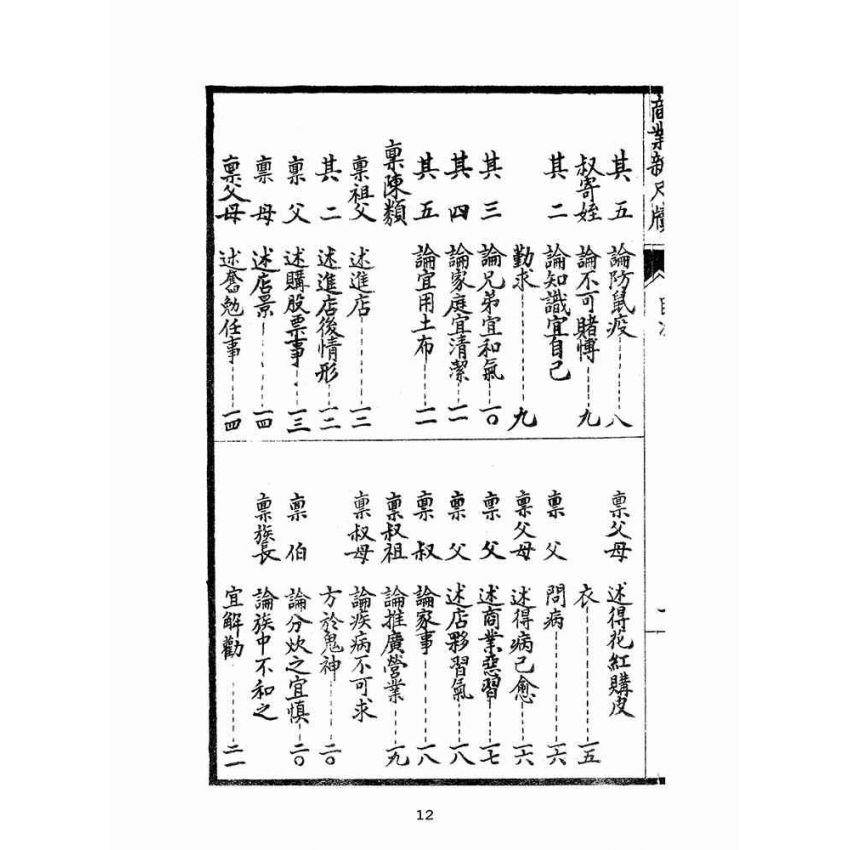 商業新尺牘
其五 論防鼠疫 八
叔寄姪 論不可賭博 九
其二 論知識宜自己
勤求 九
其三 論兄弟宜和氣 一〇
其四 論家庭宜清潔 一一
其五 論宜用土布 一一
稟陳類
稟祖父 述進店 一二
其二 述進店後情形 一二
稟父 述購股票事 一三
稟母 述店景 一四
稟父母 述奮勉任事 一四
稟父母 述得花紅購皮
衣 一五
稟父 問病 一六
稟父母 述得病已愈 一六
稟父 述商業惡習 一七
稟父 述店夥習氣 一八
稟叔 論家事 一八
稟叔祖 論推廣營業 一九
稟叔母 論疾病不可求
方於鬼神 二〇
稟伯 論分炊之宜慎 二〇
稟族長 論族中不和之
宜解勸 二一
12